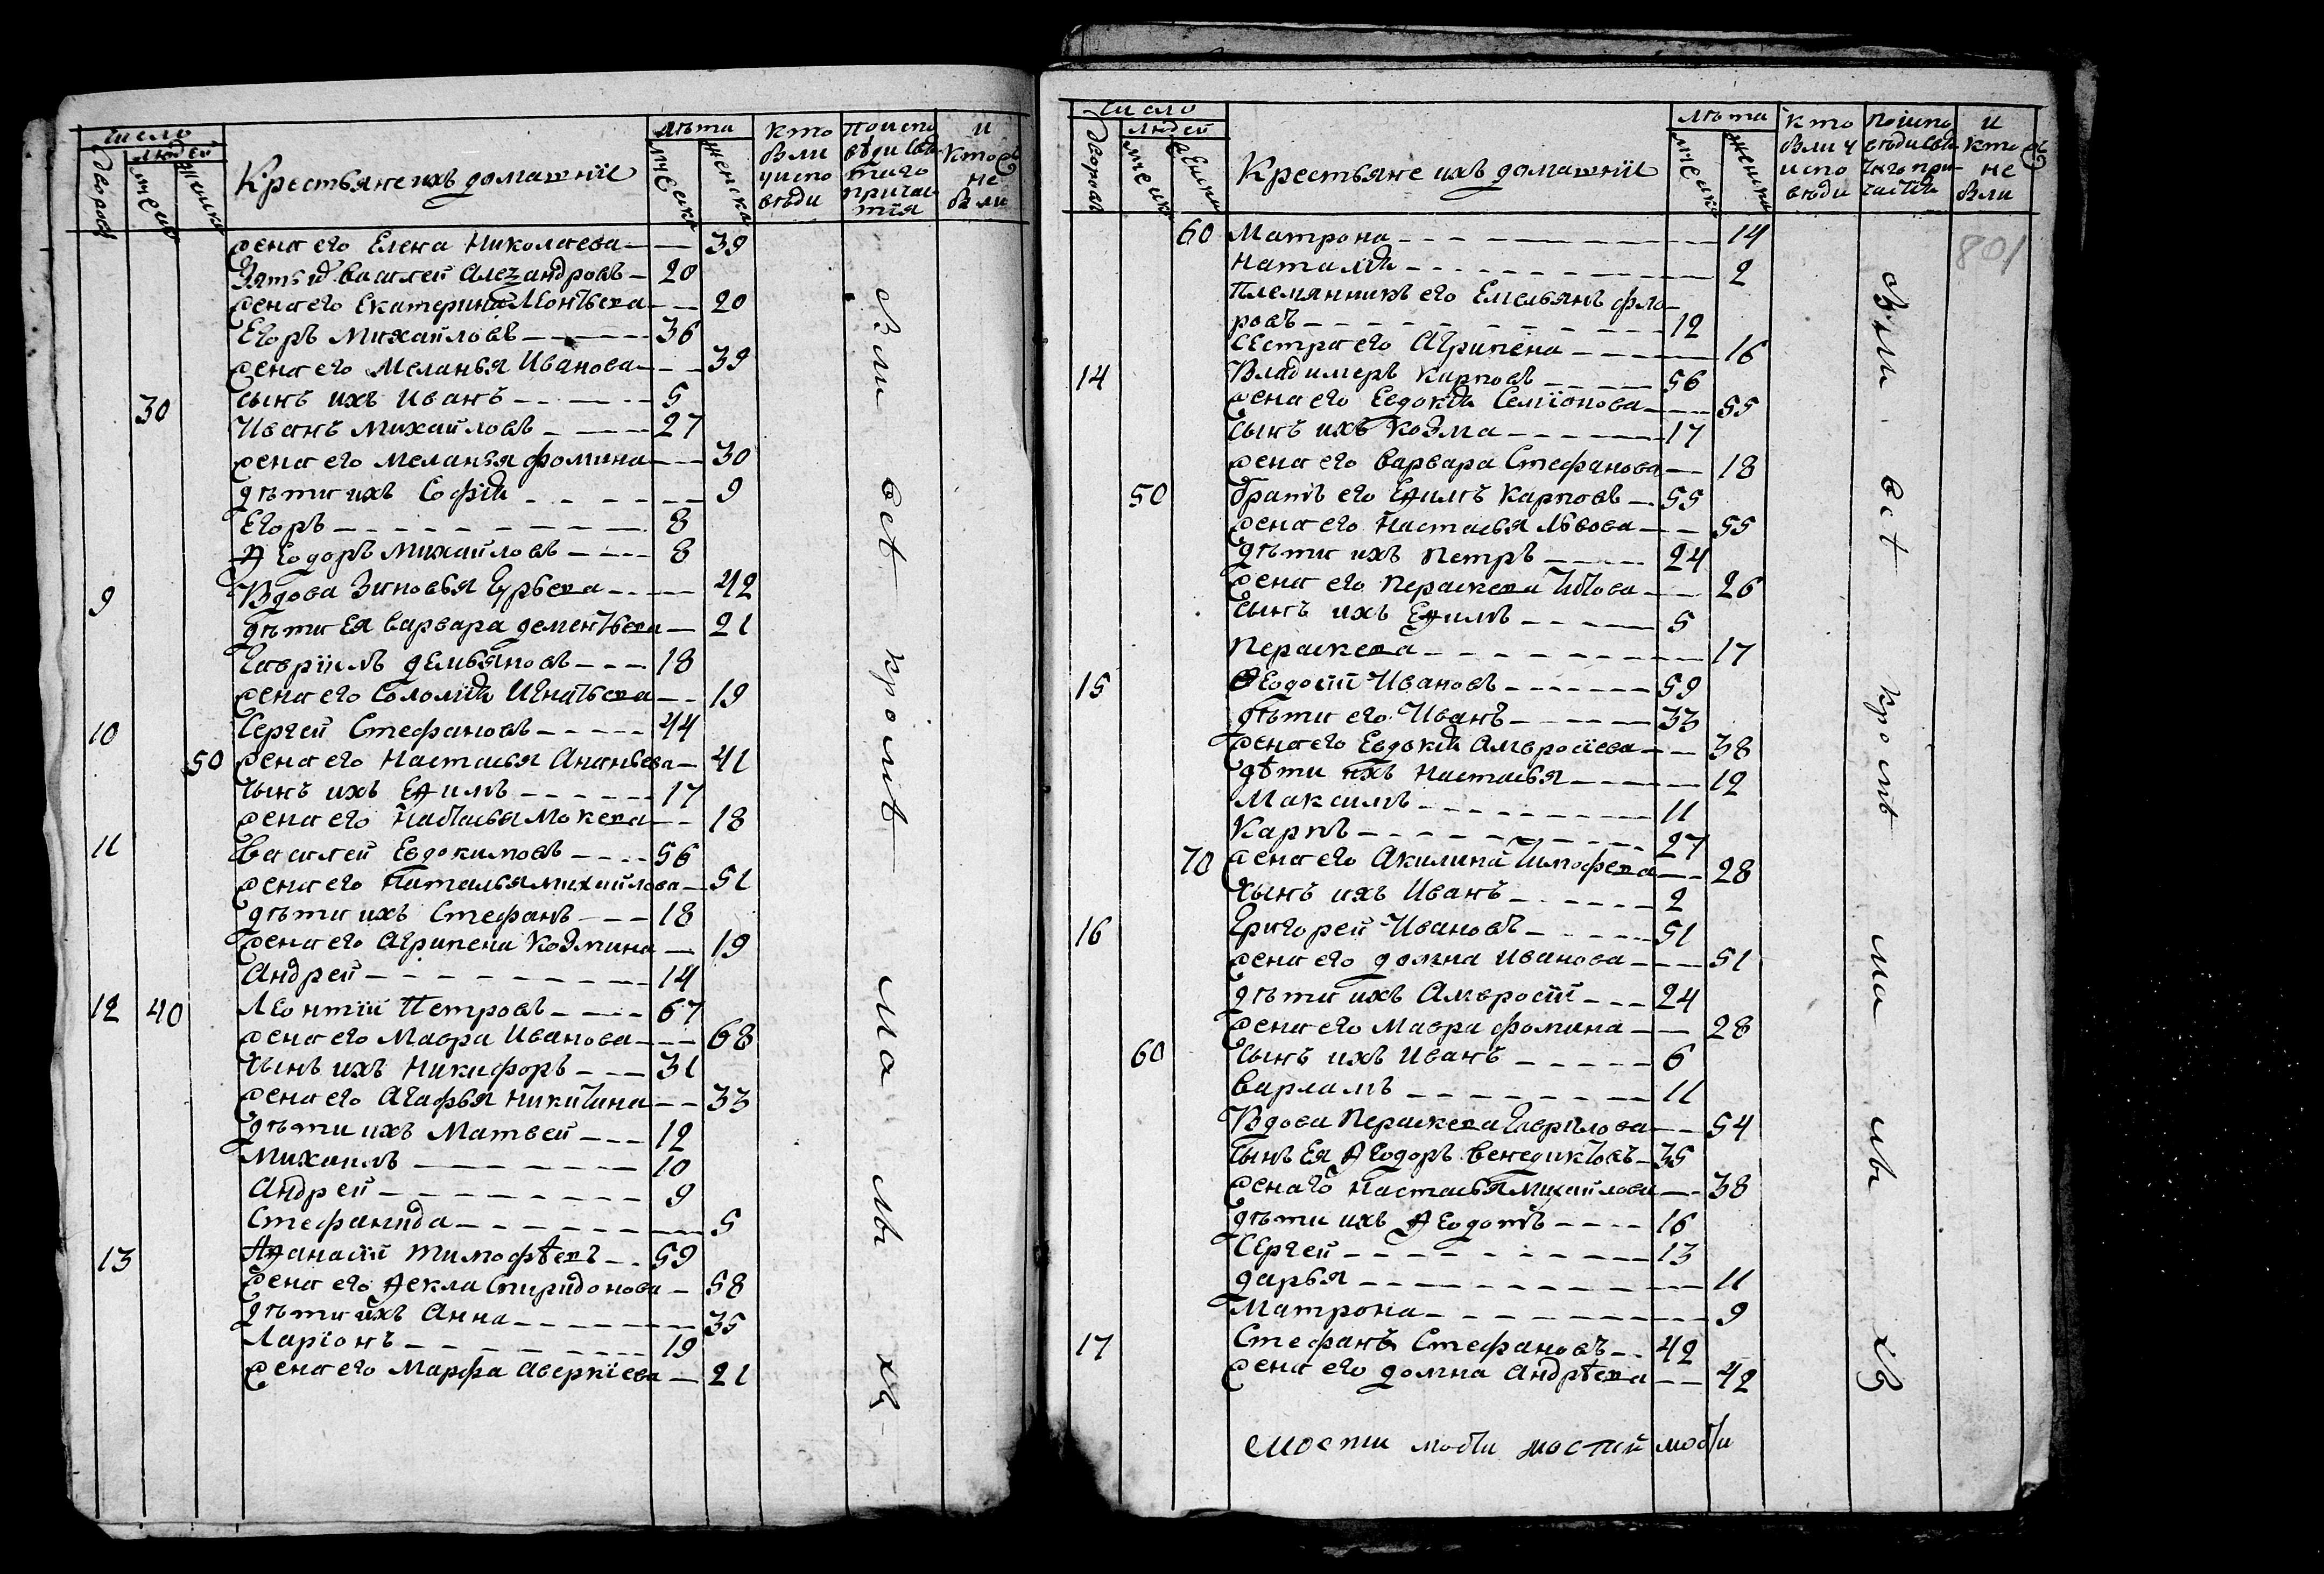 число
людей
дворовъ
мужеска
женска
Крестьяне ихъ домашнiе
лѣта
мужеска
женска
кто
были
у испо
вѣди
по испо
вѣди свя
таго
причас
тiя
и
кто
не
были
жена его Елена Николаева — — 39
Зять Василей Алеѯандровъ — 20
жена его Екатерина Леонтьева — — 20
Егоръ Михайловъ — 36
жена его Меланья Иванова — — 39
сынъ ихъ Иванъ — 5
30 Иванъ Михайловъ — 27
жена его Меланья фомина — — 30
дѣти ихъ Софiя — 9
Егоръ — 8
Ѳеодоръ Михайловъ — 8
9 Вдова Зиновья Гурьева — 42
дѣти Ея варвара дементьева — 21
Гаврiилъ демьяновъ — 18
жена его Соломiя Игнатьева — 19
10 Сергей Стефановъ — 44
50 жена его Настасья Ананьева — 41
сынъ ихъ Еѳимъ — 17
жена его Настасья Мокеева — 18
11 Василей Евдокимовъ — 56
жена его Наталья михайлова — 51
дѣти ихъ Стефанъ — 18
жена его Агрипена Козмина — 19
Андрей — 14
12 40 Леонтiй Петровъ — 67
жена его Мавра Иванова — 68
сынъ ихъ Никифоръ — 31
жена его Агафья Никитина — 33
дѣти ихъ Матвей — 12
Михаилъ — 10
Андрей — 9
Стефанида — 5
13 Аѳанасiй тимофѣевъ — 59
жена его Ѳекла Спиридонова — 58
дѣти ихъ Анна — 35
Ларiонъ — 19
жена его Марфа Аверкiева — 21
Были всѣ кромѣ малыхъ
число
людей
дворовъ
мужеска
женска
Крестьяне ихъ домашнiе
лѣта
мужеска
женска
кто
были у
испо
вѣди
по испо
вѣди свя
таго при
частiя
и
кто
не
были
801
60 Матрона — 14
Наталiя — 2
Племянникъ его Емельянъ фло-
ровъ — 12
сестра его Агрипена — 16
14 Владимеръ Карповъ — 56
жена его Евдокiя Семiонова — 55
сынъ ихъ Козма — 17
жена его Варвара Стефанова — 18
50 братъ его Еѳимъ Карповъ — 55
жена его Настасья Львова — 55
дѣти ихъ Петръ — 24
жена его Пераскева Титова — 26
сынъ ихъ Еѳимъ — 5
Пераскева — 17
15 Ѳеодосiй Ивановъ — 59
дѣти его Иванъ — 33
жена его Евдокiя Амвросiева — 38
дѣти ихъ Настасья — 12
Максимъ — 11
Карпъ — 27
70 жена его Акилина Тимофеева — 28
сынъ ихъ Иванъ — 2
16 Григорей Ивановъ — 51
жена его домна Иванова — 51
дѣти ихъ Амвросiй — 24
жена его Мавра фомина — 28
60 сынъ ихъ Иванъ — 6
Варламъ — 11
Вдова Пераскева Гаврiлова — 54
сынъ Ея Ѳеодоръ Венедиктовъ — 35
жена его Настасья Михайлова — 38
дѣти ихъ Ѳеодотъ — 16
Сергей — 13
дарья — 11
Матрона — 9
17 Стефанъ Стефановъ — 42
жена его домна Андрѣева — 42
Были всѣ кромѣ малыхъ